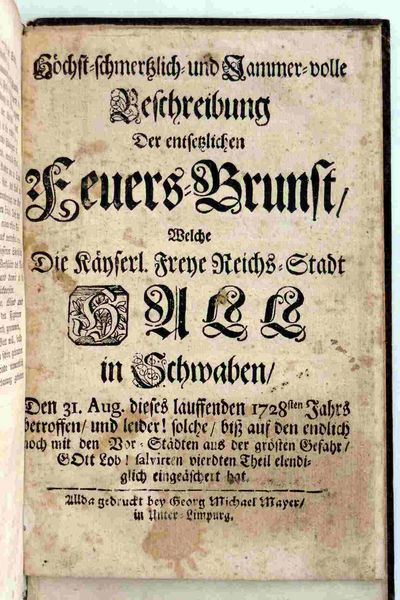 Höchst-schmertzlich- und Jammer-volle
Beschreibung
Der entsetzlichen
Feuers-Brunst/
Welche
Die Käyserl. Freye Reichs-Stadt
HALL
in Schwaben/
Den 31. Aug. dieses lauffenden 1728sten Jahrs
betroffen/ und leider! solche/ biß auf den endlich
noch mit den Vor-Städten aus der grösten Gefahr/
GOtt Lob! salvirten vierdten Theil elendi-
glich eingeäschert hat.
Allda gedruckt bey Georg Michael Mayer/
in Unter-Limpurg.